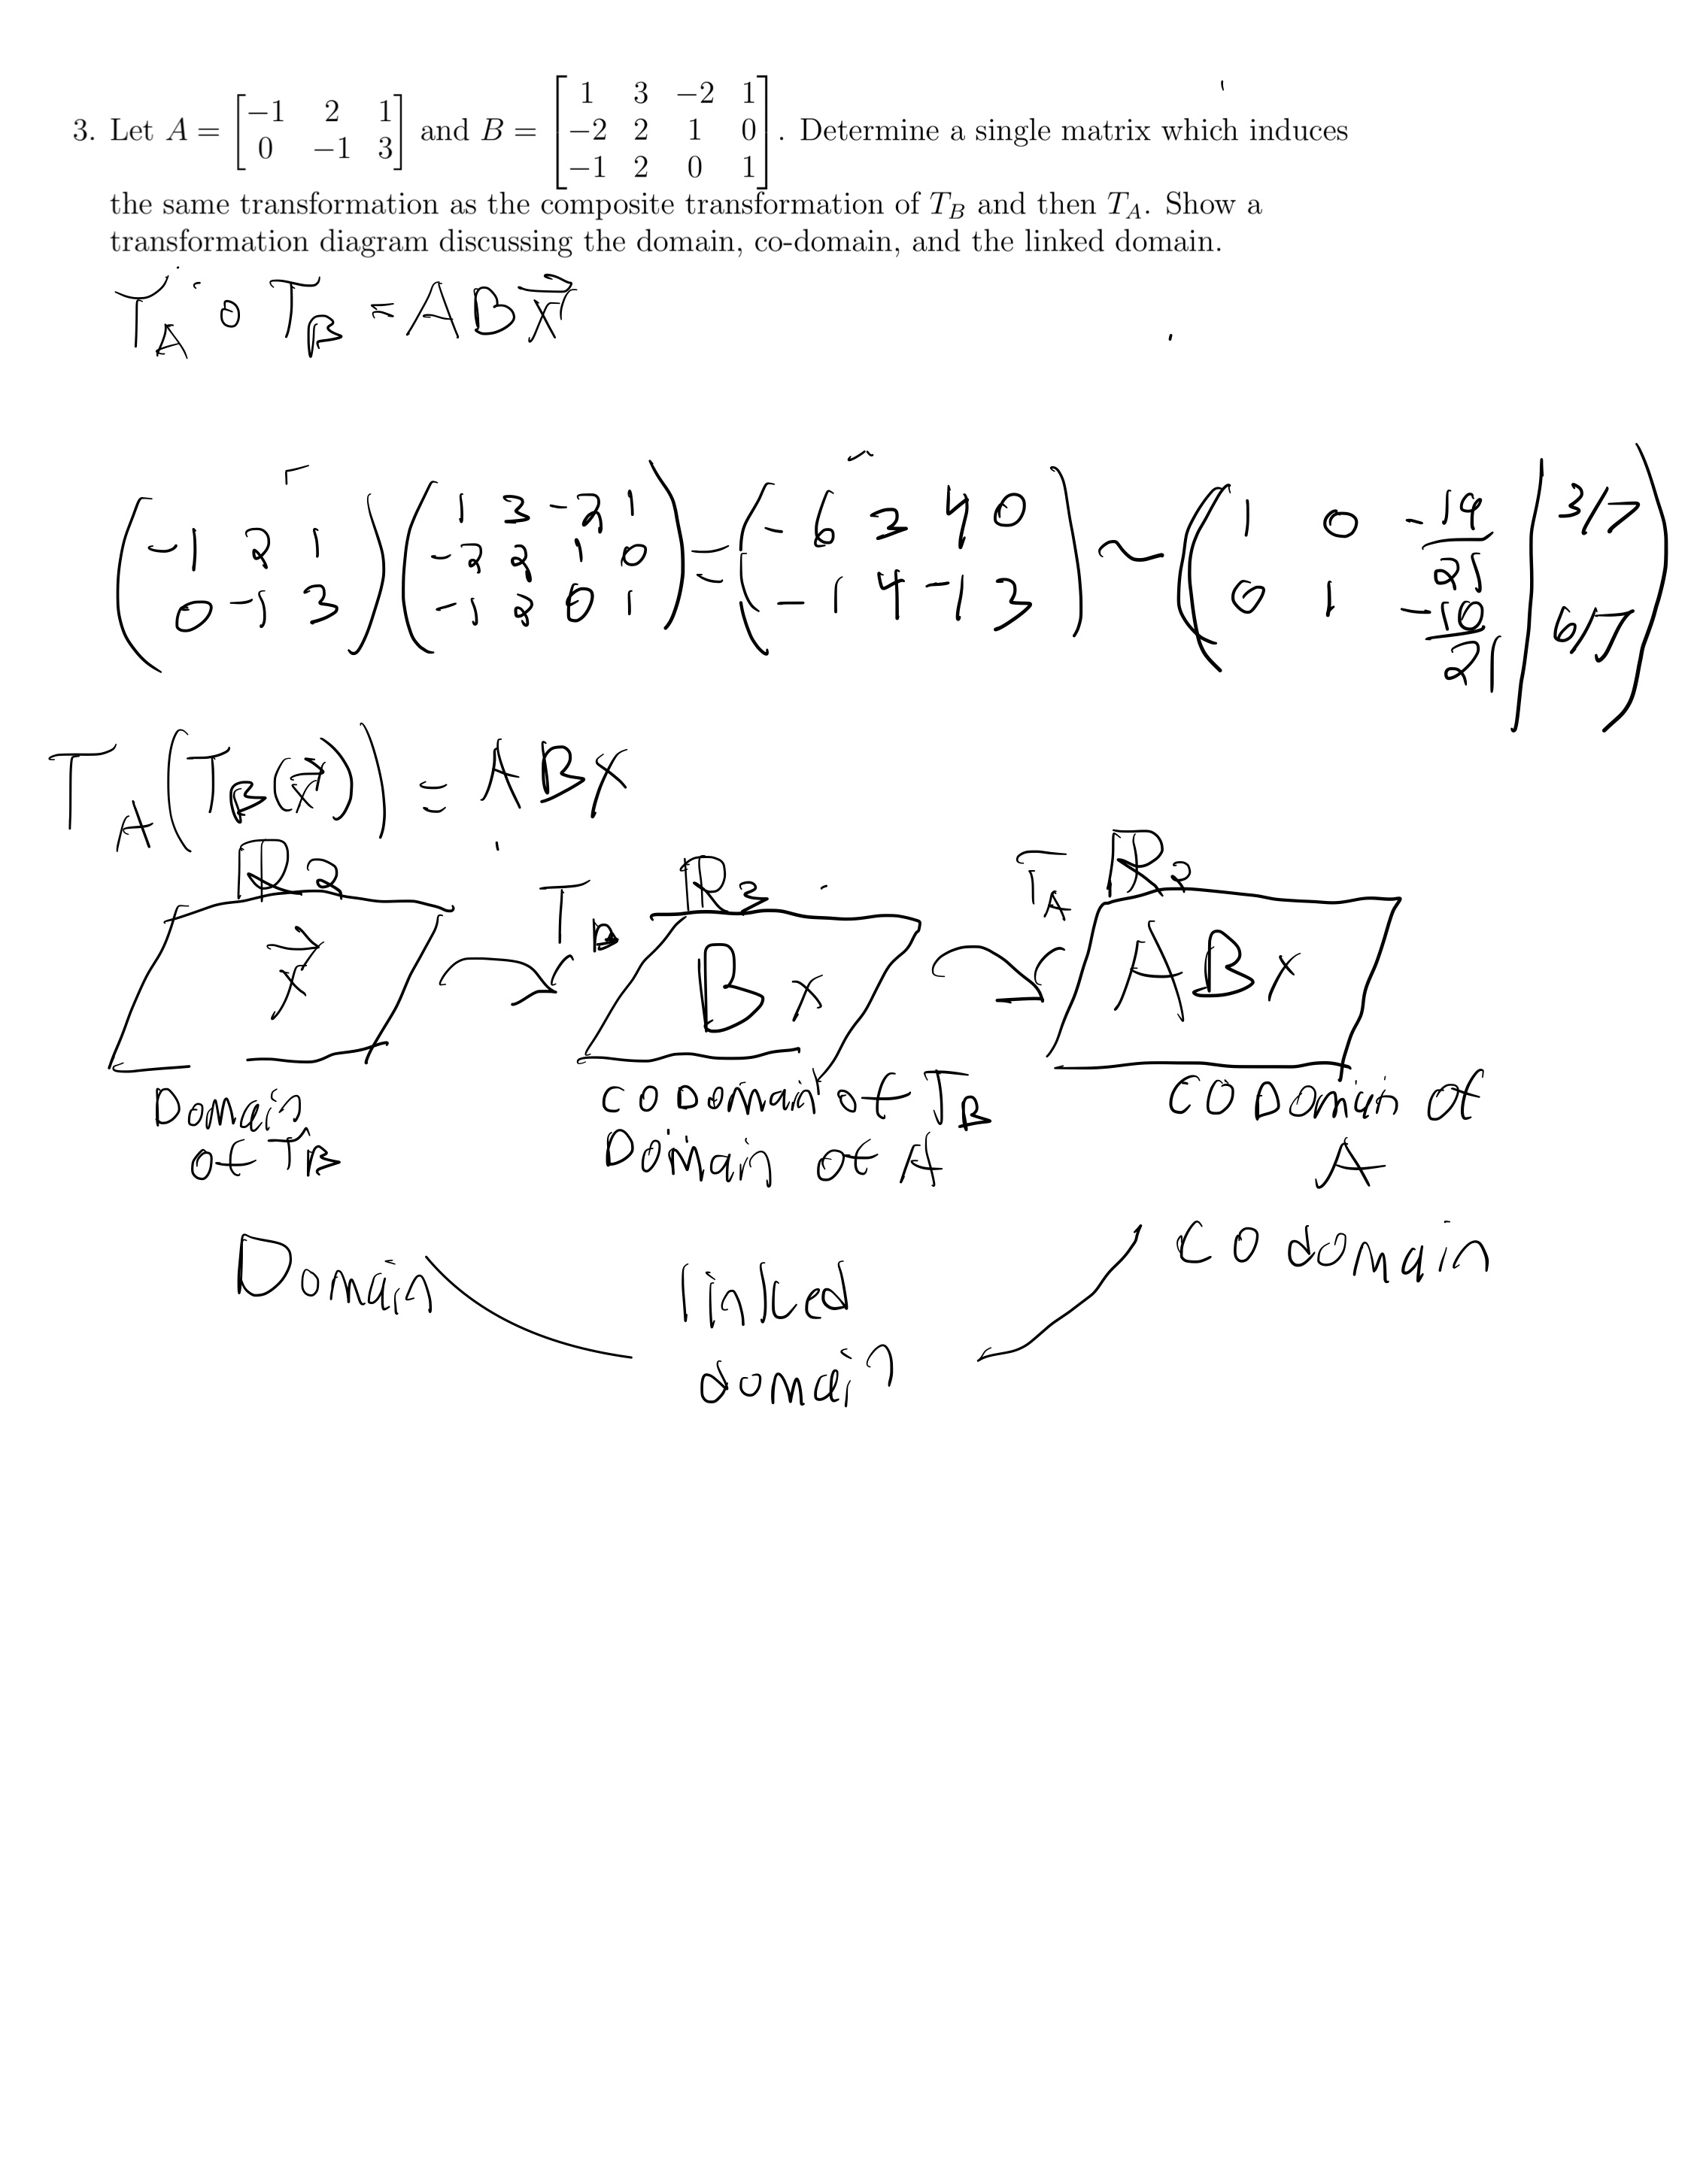 3. Let A = [−1 2 1; 0 −1 3] and B = [1 3 −2 1; −2 2 1 0; −1 2 0 1]. Determine a single matrix which induces
the same transformation as the composite transformation of T_B and then T_A. Show a
transformation diagram discussing the domain, co-domain, and the linked domain.
T_A ∘ T_B = AB\vec{x}
(−1 2 1; 0 −1 3)(1 3 −2 1; −2 2 1 0; −1 2 0 1) = (−6 3 4 0; −1 4 −1 3) ~ (1 0 −19/21 | 3/7; 0 1 −10/21 | 6/7)
T_A(T_B(\vec{x})) = ABx
ℝ2 T_B ℝ3 T_A ℝ2
\vec{x} Bx ABx
Domain CODomain of T_B CODomain of
of T_B Domain of A A
Domain linked codomain
domain